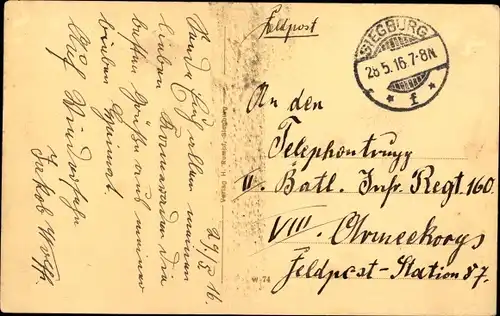 Feldpost
SIEGBURG
28.5.16.7-8N.
f
An den
Telephontrupp
II. Batl. Inf. Regt. 160.
VIII. Armeekorps
Feldpost-Station 87.
29/5 16.
Sende Euch allen meinen
lieben Kameraden die
besten Grüße aus meiner
lieben Heimat
Auf Wiedersehn
Jakob Wolff.
W. 74